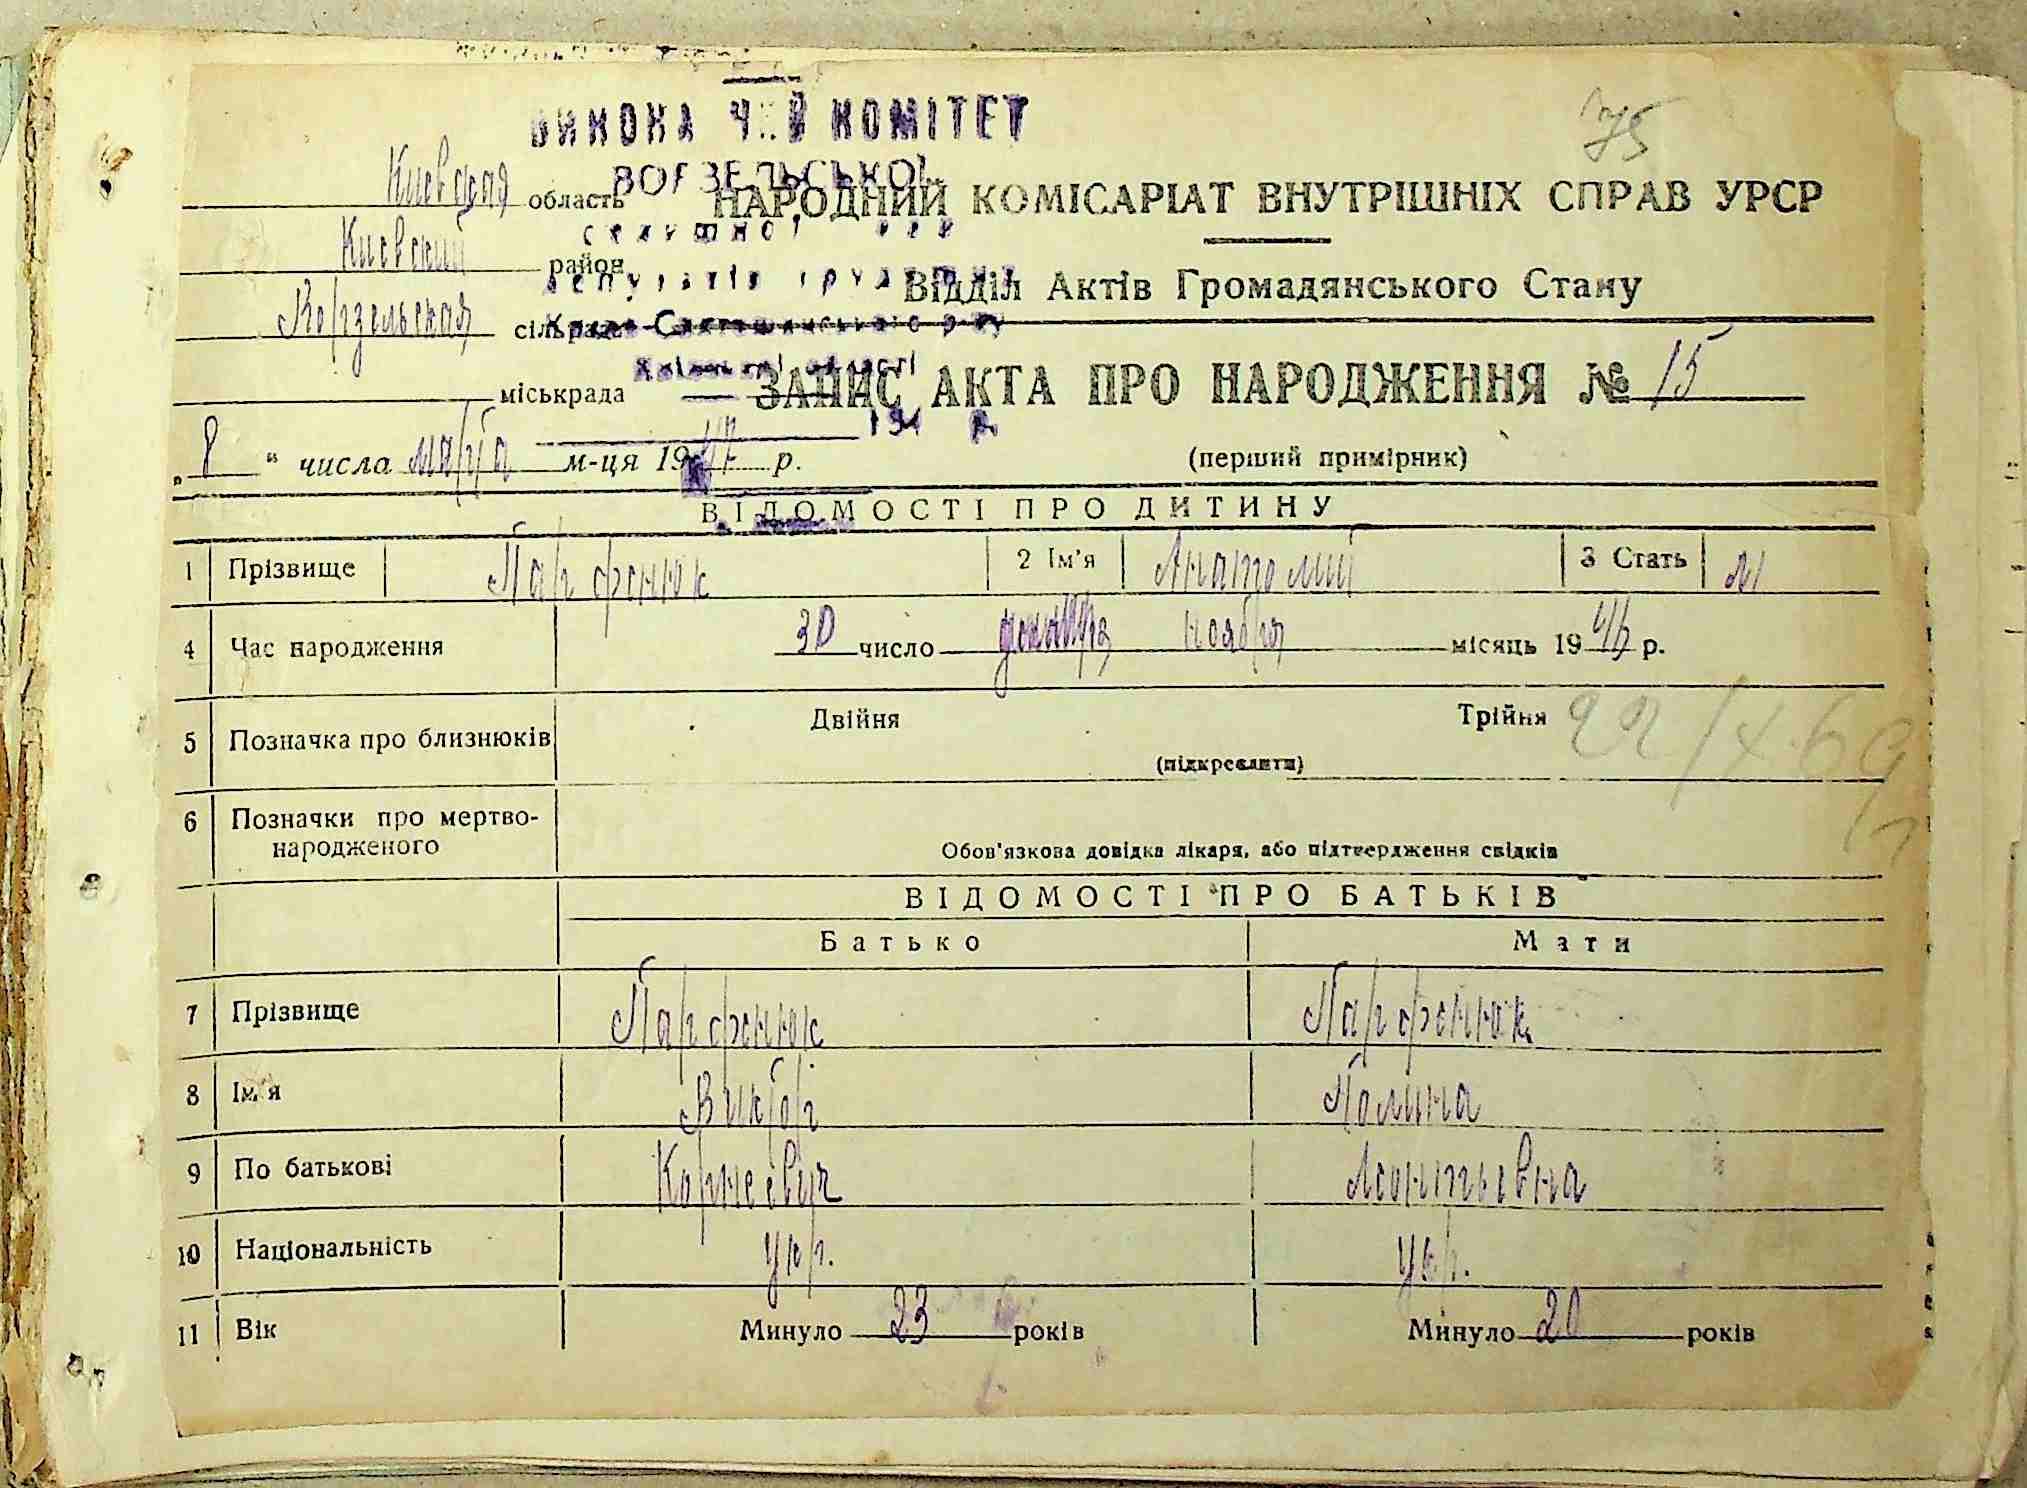 ВИКОНАЧ Й КОМІТЕТ
75
Киевская область
ВОРЗЕЛЬСЬКОЇ
НАРОДНИЙ КОМІСАРІАТ ВНУТРІШНІХ СПРАВ УРСР
Киевский район
Відділ Актів Громадянського Стану
Ворзельская сільрада
міськрада
ЗАПИС АКТА ПРО НАРОДЖЕННЯ № 15
„8" числа марта м-ця 1947 р.
(перший примірник)
ВІДОМОСТІ ПРО ДИТИНУ
1 Прізвище Парфенюк 2 Ім'я Анатолий 3 Стать м
4 Час народження 30 число декабря ноября місяць 1946 р.
5 Позначка про близнюків Двійня Трійня
(підкреслити)
22/X-69
6 Позначки про мертво-
народженого
Обов'язкова довідка лікаря, або підтвердження свідків
ВІДОМОСТІ ПРО БАТЬКІВ
Батько Мати
7 Прізвище Парфенюк Парфенюк
8 Ім'я Виктор Полина
9 По батькові Корнеевич Леонтьевна
10 Національність укр. укр.
11 Вік Минуло 23 років Минуло 20 років